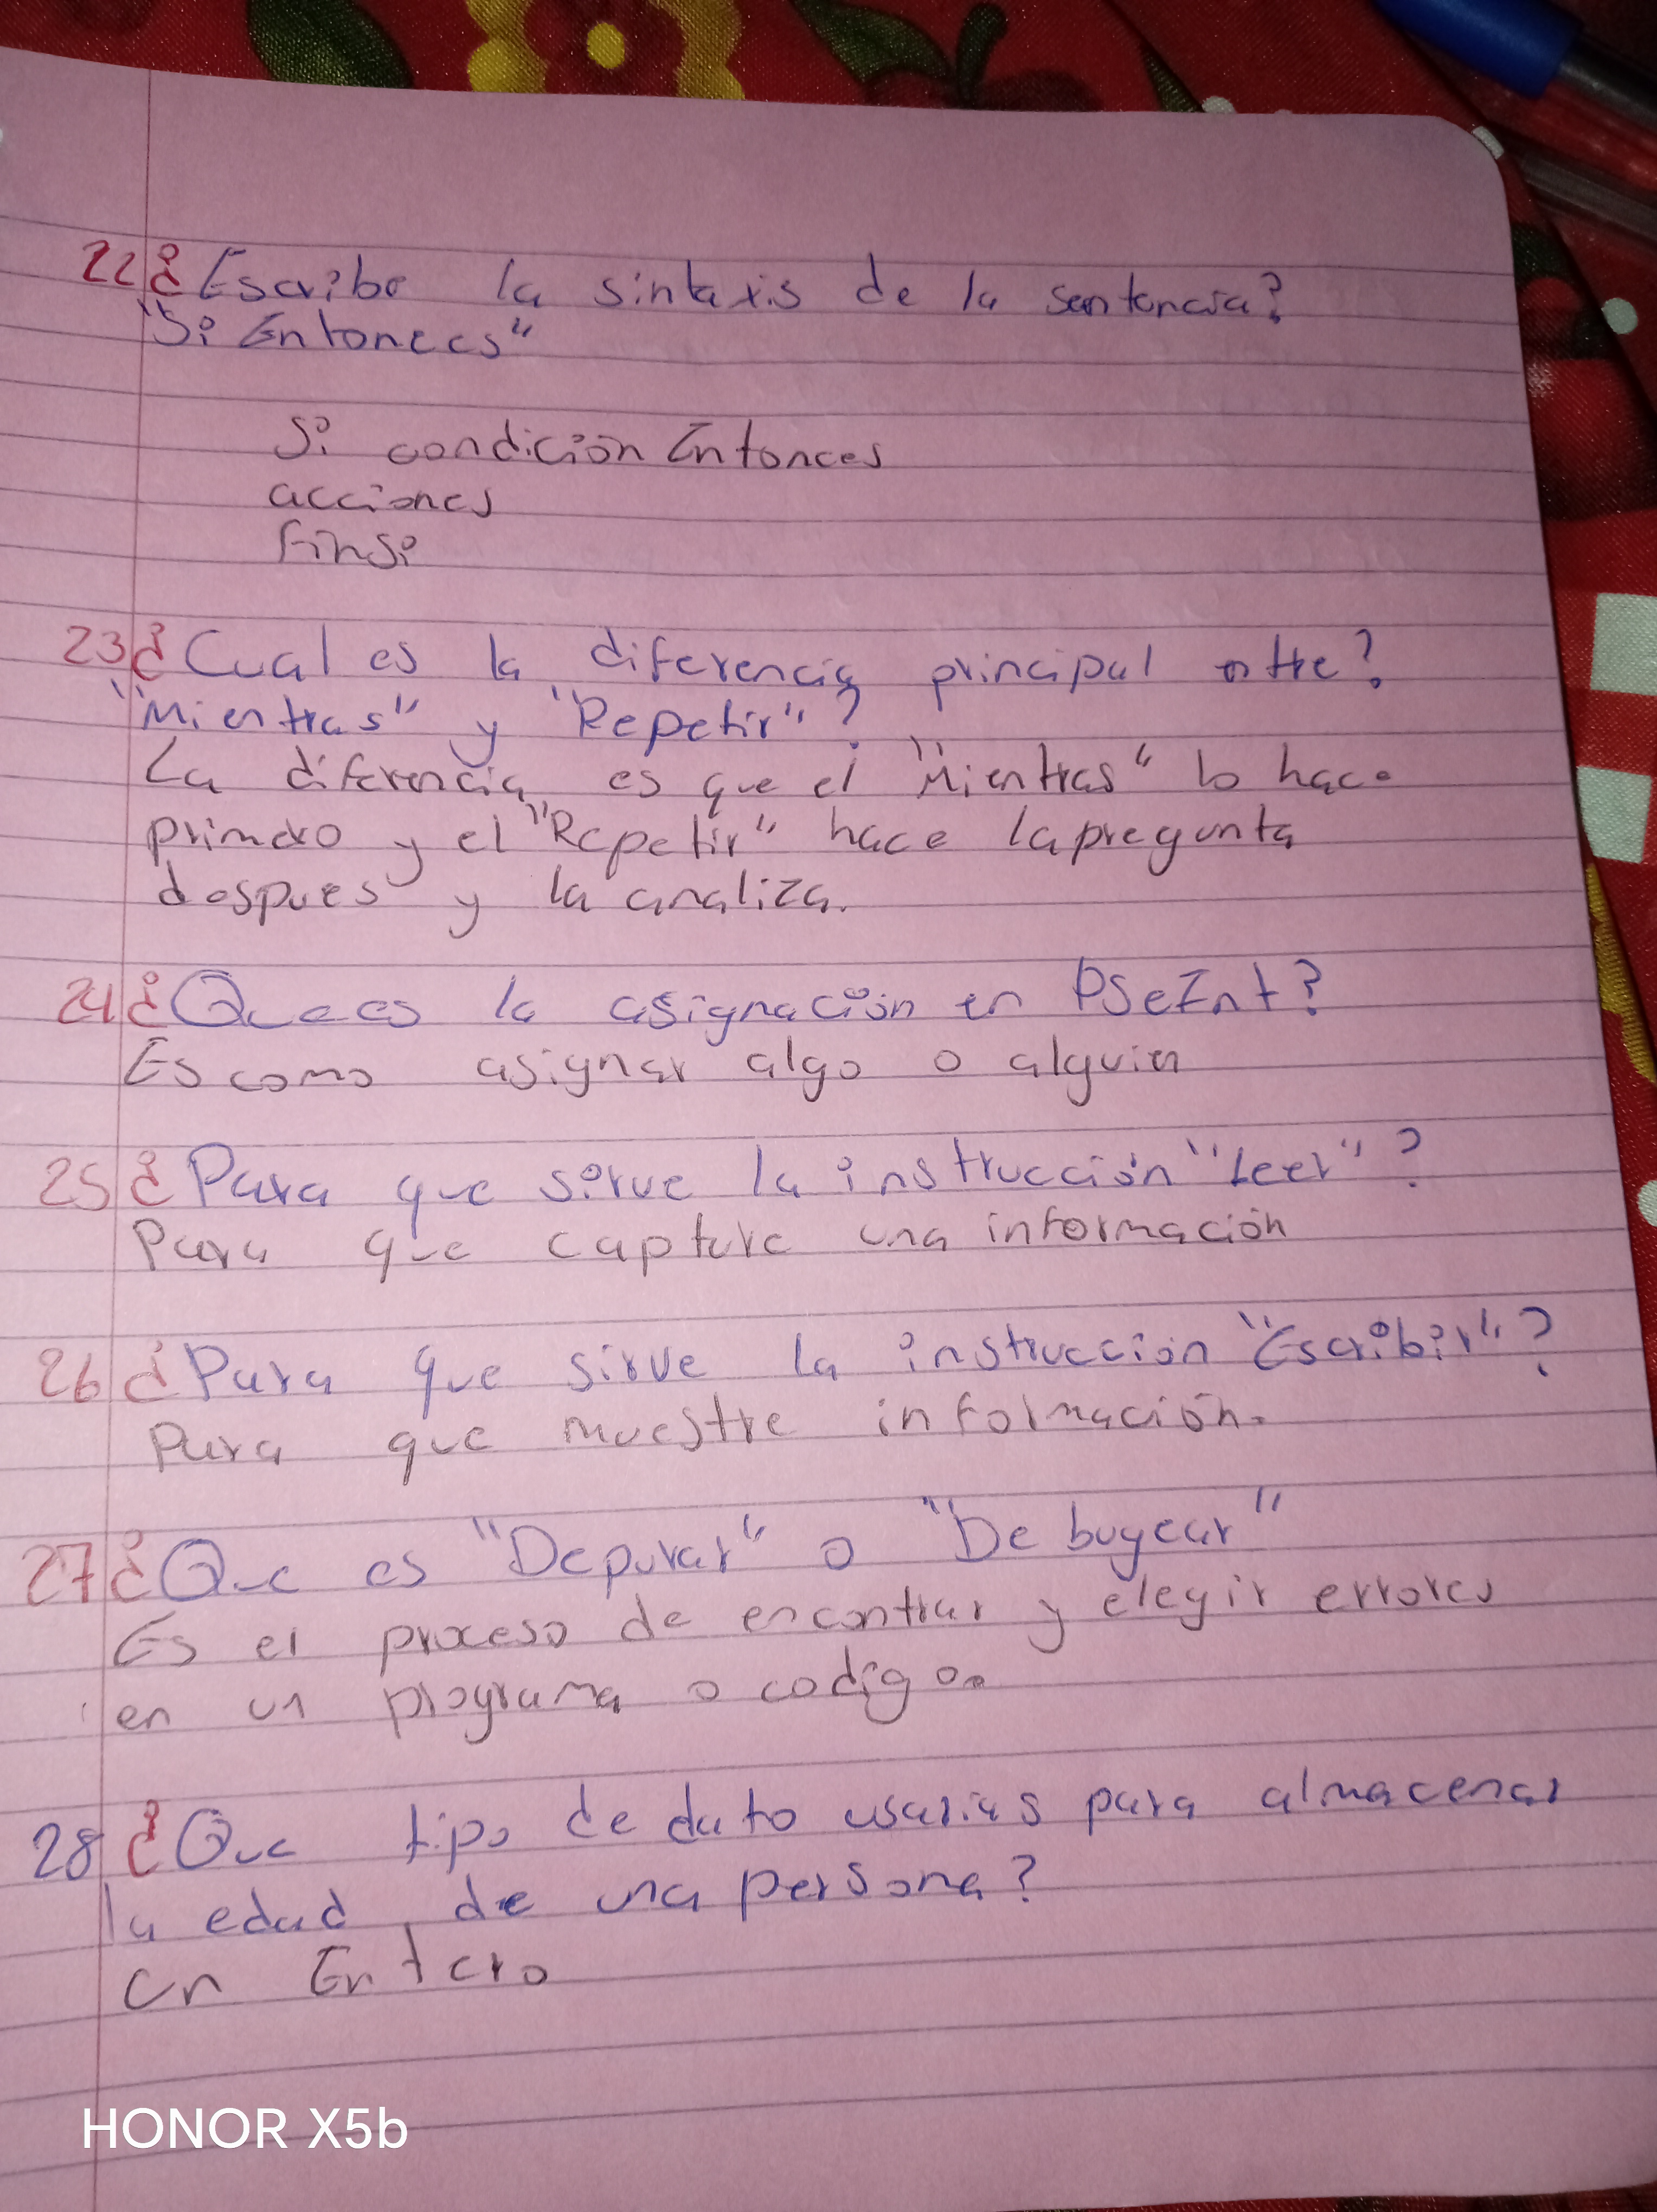 22¿Escribe la sintaxis de la sentencia?
"Si Entonces"
Si condición Entonces
acciones
FinSi
23¿Cual es la diferencia principal entre?
"Mientras" y "Repetir"?
La diferencia es que el "Mientras" lo hace
primero y el "Repetir" hace la pregunta
despues y la analiza.
24¿Que es la asignación en PSeInt?
Es como asignar algo o alguien
25¿Para que sirve la instrucción "Leer"?
Para que capture una información
26¿Para que sirve la instrucción "Escribir"?
Para que muestre información.
27¿Que es "Depurar" o "Debugear"
Es el proceso de encontrar y elegir errores
en un programa o codigo.
28¿Que tipo de dato usarias para almacenar
la edad de una persona?
Un Entero
HONOR X5b